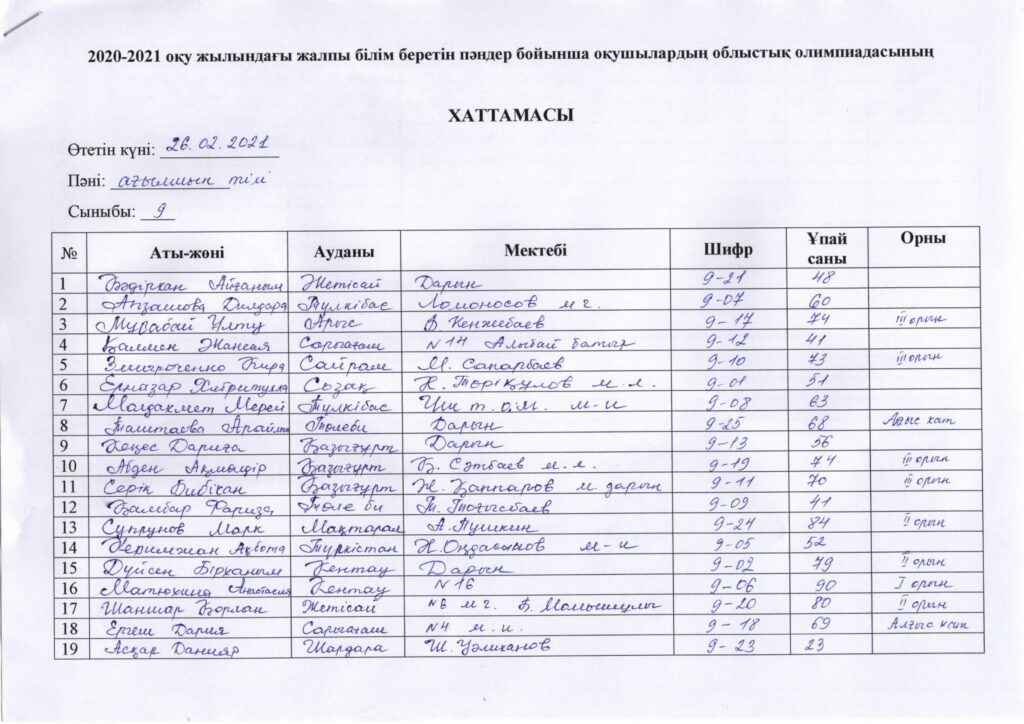 2020-2021 оқу жылындағы жалпы білім беретін пәндер бойынша оқушылардың облыстық олимпиадасының
ХАТТАМАСЫ
Өтетін күні: 26.02.2021
Пәні: ағылшын тілі
Сыныбы: 9
№ Аты-жөні Ауданы Мектебі Шифр Ұпай саны Орны
1 Айғаным Жетісай Дарын 9-21 48
2 Дилдора Түлкібас Ломоносов м г. 9-07 60
3 Мұрабай Ұлту Арыс 9-17 74 III орын
4 Қалмен Жансая Сарыағаш №14 Алыбай батыр 9-12 41
5 Кира Сайрам М. Сапарбаев 9-10 73 III орын
6 Ерназар Созақ Н. Төреқұлов м.л. 9-01 51
7 Мерей Түлкібас м-и 9-08 63
8 Таштаева Төлеби Дарын 9-25 68 хат
9 Кеңес Дариға Қазығұрт Дарын 9-13 56
10 Абден Ақмөлдір Қазығұрт Қ. Сәтбаев м.л. 9-19 74 III орын
11 Серік Бибіхан Қазығұрт Ж. Қаппаров м. дарын 9-11 70 III орын
12 Қамбар Фариза Төле би 9-09 41
13 Супрунов Марк Мақтарал А. Пушкин 9-24 84 II орын
14 Керимжан Ақбота Түркістан Н. Оңдасынов м-и 9-05 52
15 Дүйсен Бірханым Кентау Дарын 9-02 79 II орын
16 Матюхина Анастасия Кентау №16 9-06 90 I орын
17 Шаншар Қорлан Жетісай №6 м г. Б. Момышұлы 9-20 80 II орын
18 Ергеш Дария Сарыағаш №4 м.и. 9-18 69 Алғыс
19 Асқар Данияр Шардара Ш. Уәлиханов 9-23 23